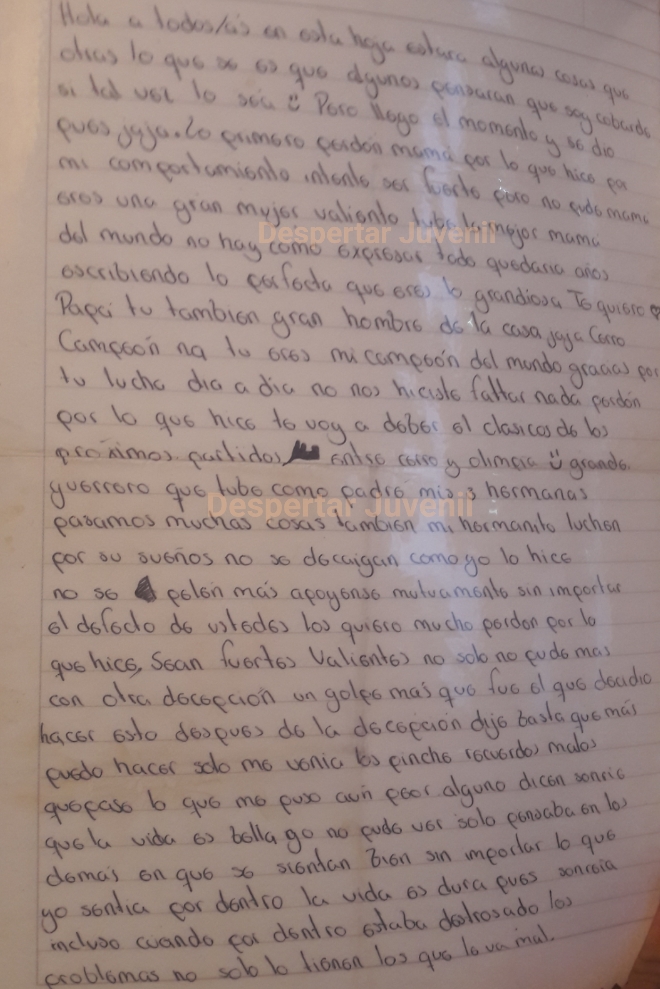 Hola a todos/as en esta hoja estara algunas cosas que
diras lo que se es que algunos pensaran que soy cobarde
si tal vez lo sea ü Pero llego el momento y se dio
pues jaja. Lo primero perdón mamá por lo que hice pa
mi comportamiento intente ser fuerte pero no pude mama
eres una gran mujer valiente tube la mejor mama
del mundo no hay como expresar todo quedaria años
escribiendo lo perfecta que eres lo grandiosa Te quiero
Papá tu tambien gran hombre de la casa jaja Cerro
Campeón na tu eres mi campeón del mundo gracias por
tu lucha dia a dia no nos hiciste faltar nada perdón
por lo que hice te voy a deber el clasicos de los
próximos partidos entre cerro y olimpia ü grande
guerrero que tube como padre mis 3 hermanas
pasamos muchas cosas tambien mi hermanito luchen
por su sueños no se decaigan como yo lo hice
no se pelen más apoyense mutuamente sin importar
el defecto de ustedes los quiero mucho perdon por lo
que hice, Sean fuertes Valientes no solo no pude mas
con otra decepción un golpe más que fue el que decidio
hacer esto despues de la decepción dije basta que más
puedo hacer solo me venia los pinche recuerdos malos
que paso lo que me puso aún peor alguno dicen sonrie
que la vida es bella yo no pude ver solo pensaba en los
demas en que se sientan bien sin importar lo que
yo sentia por dentro la vida es dura pues sonreia
incluso cuando por dentro estaba destrosado los
problemas no solo lo tienen los que le va mal.
Despertar Juvenil
Despertar Juvenil